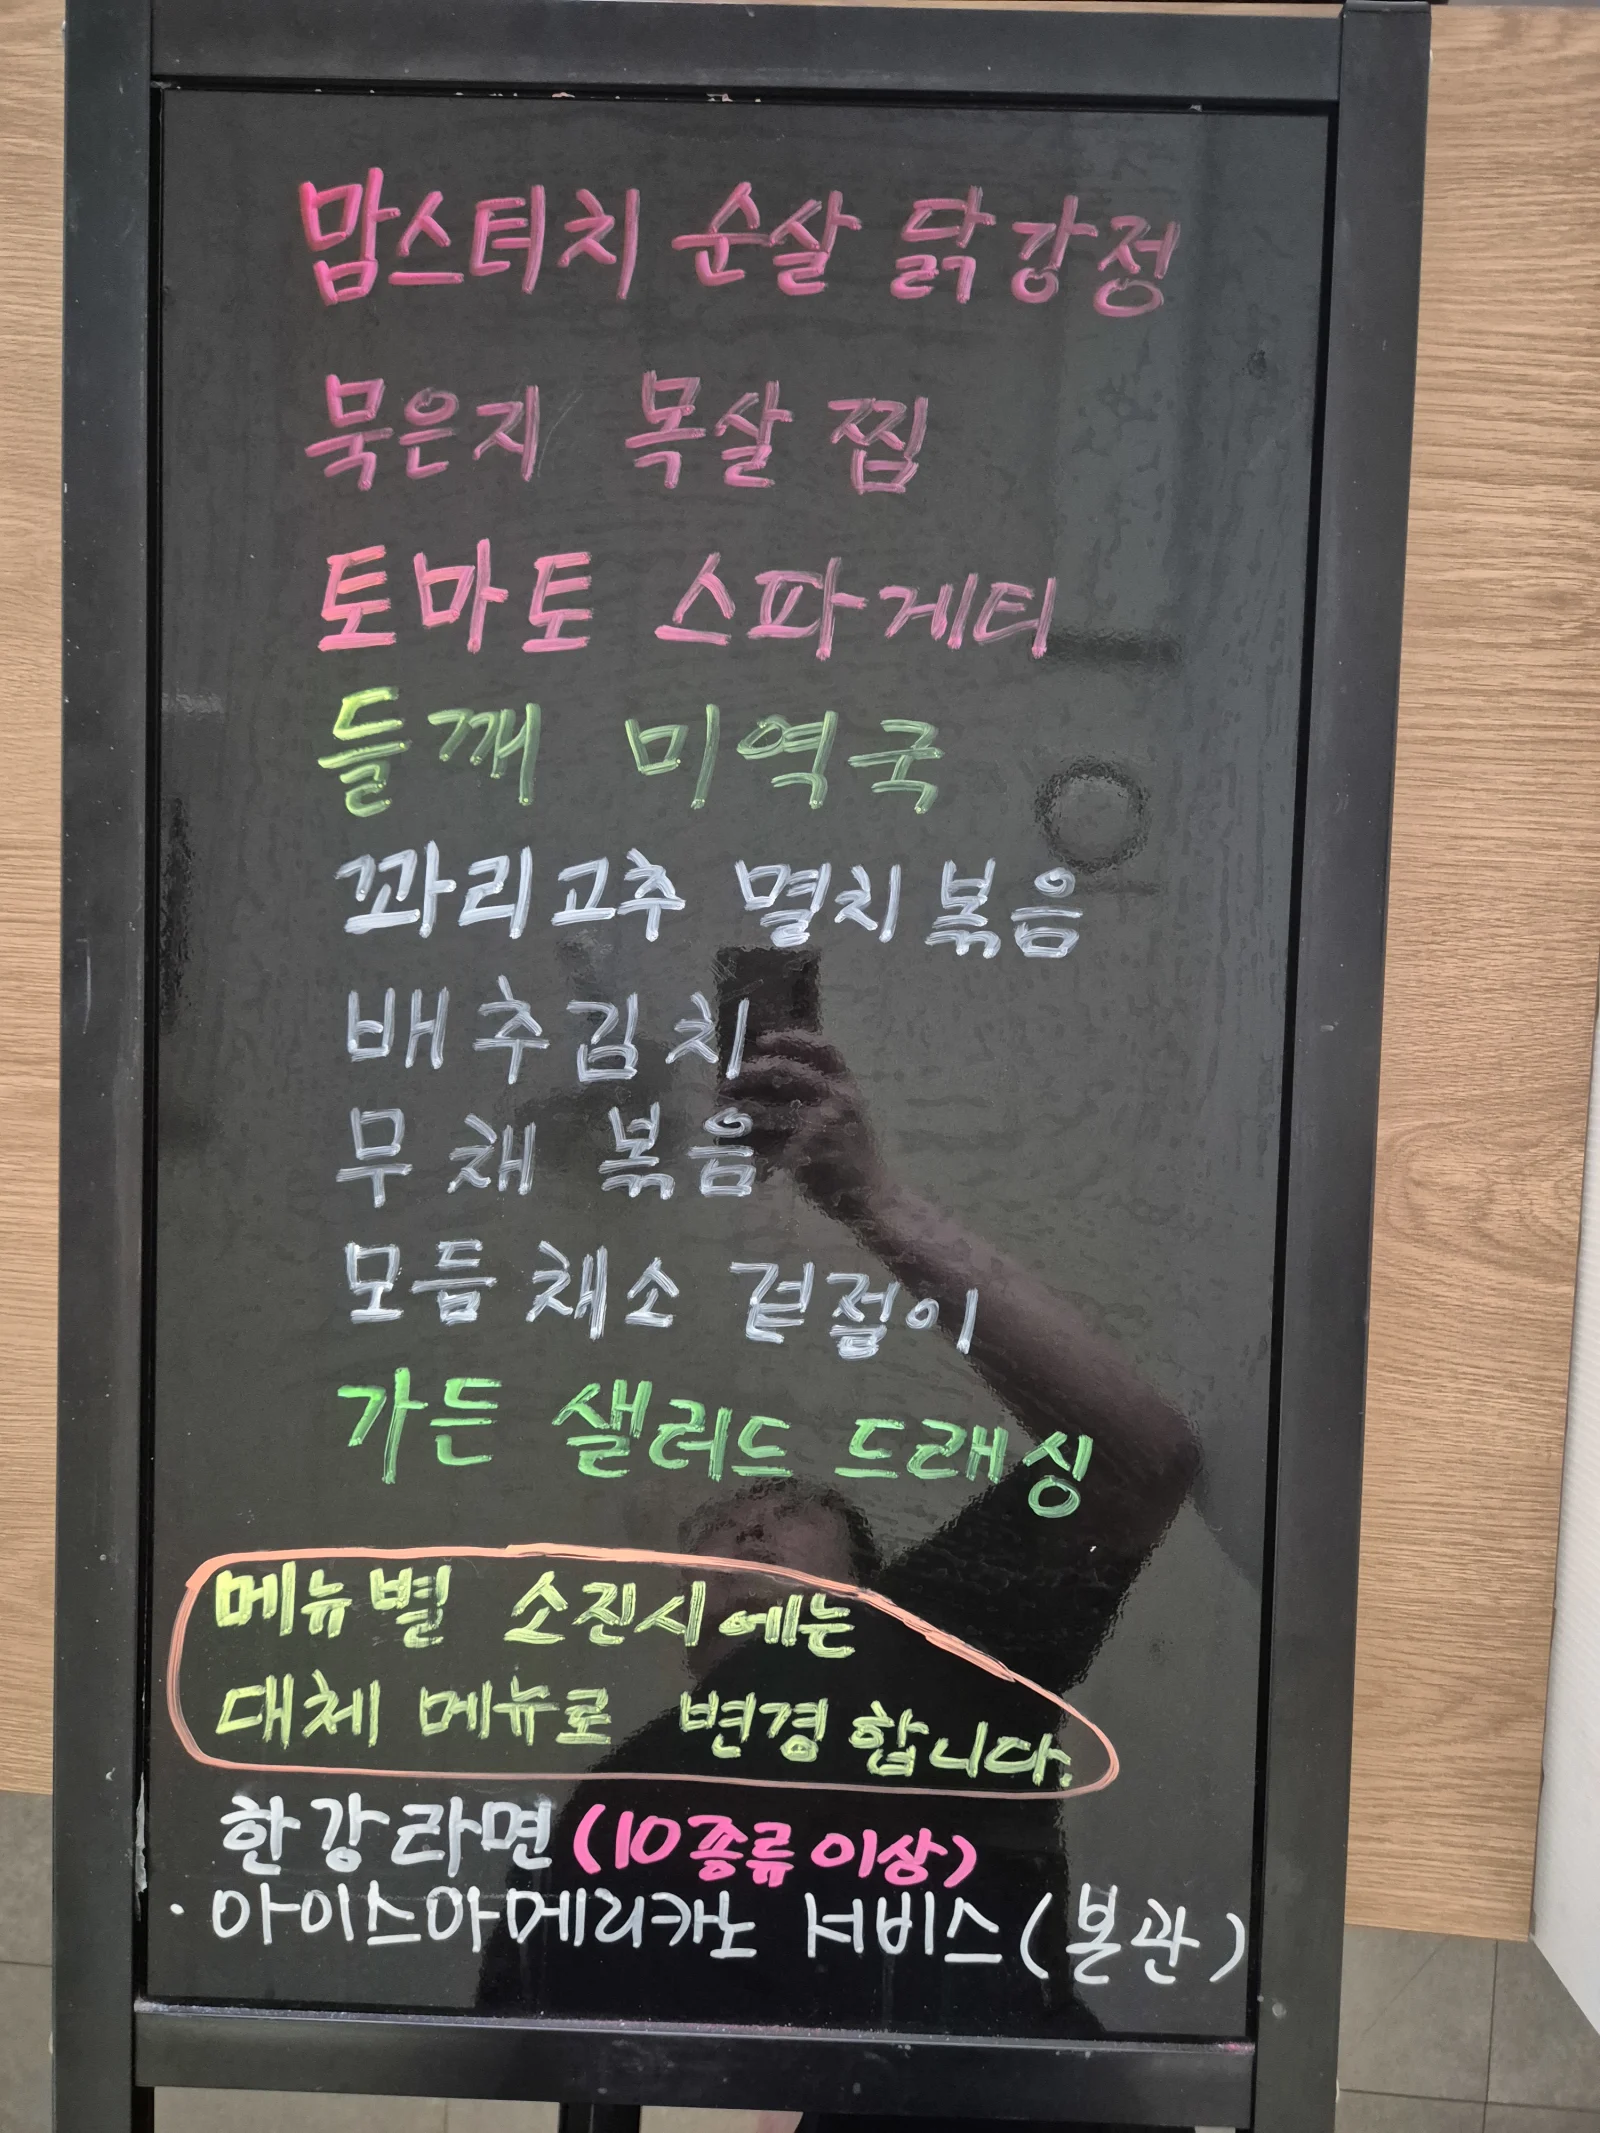 맘스터치 순살 닭강정
묵은지 목살찜
토마토 스파게티
들깨 미역국
꽈리고추 멸치볶음
배추김치
무채 볶음
모듬채소 겉절이
가든 샐러드 드래싱
메뉴별 소진시에는
대체 메뉴로 변경합니다.
한강라면(10종류이상)
·아이스아메리카노 서비스(본관)